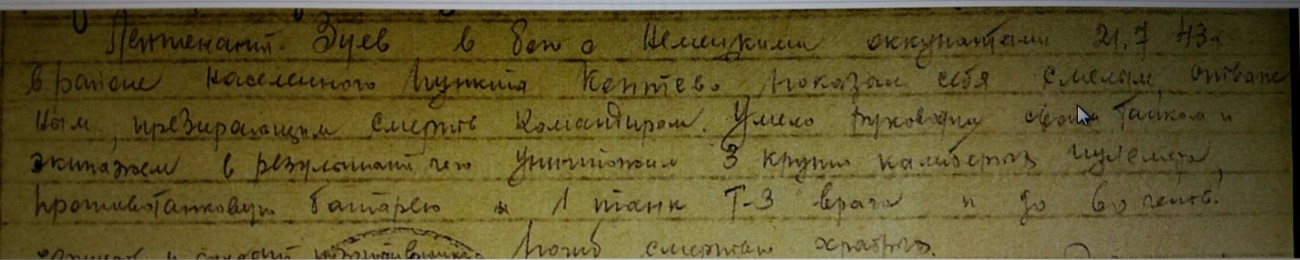 Лейтенант Зуев в бою с Немецкими оккупантами 21.7 43г
в районе населенного пункта Коптево показал себя смелым, отваж
ным, презирающим смерть командиром. Умело руководил своим танком и
экипажем в результате чего уничтожил 3 крупно калиберных пулемета,
противотанковую батарею и 1 танк Т-3 врага и до 60 человек.
Погиб смертью храбрых.